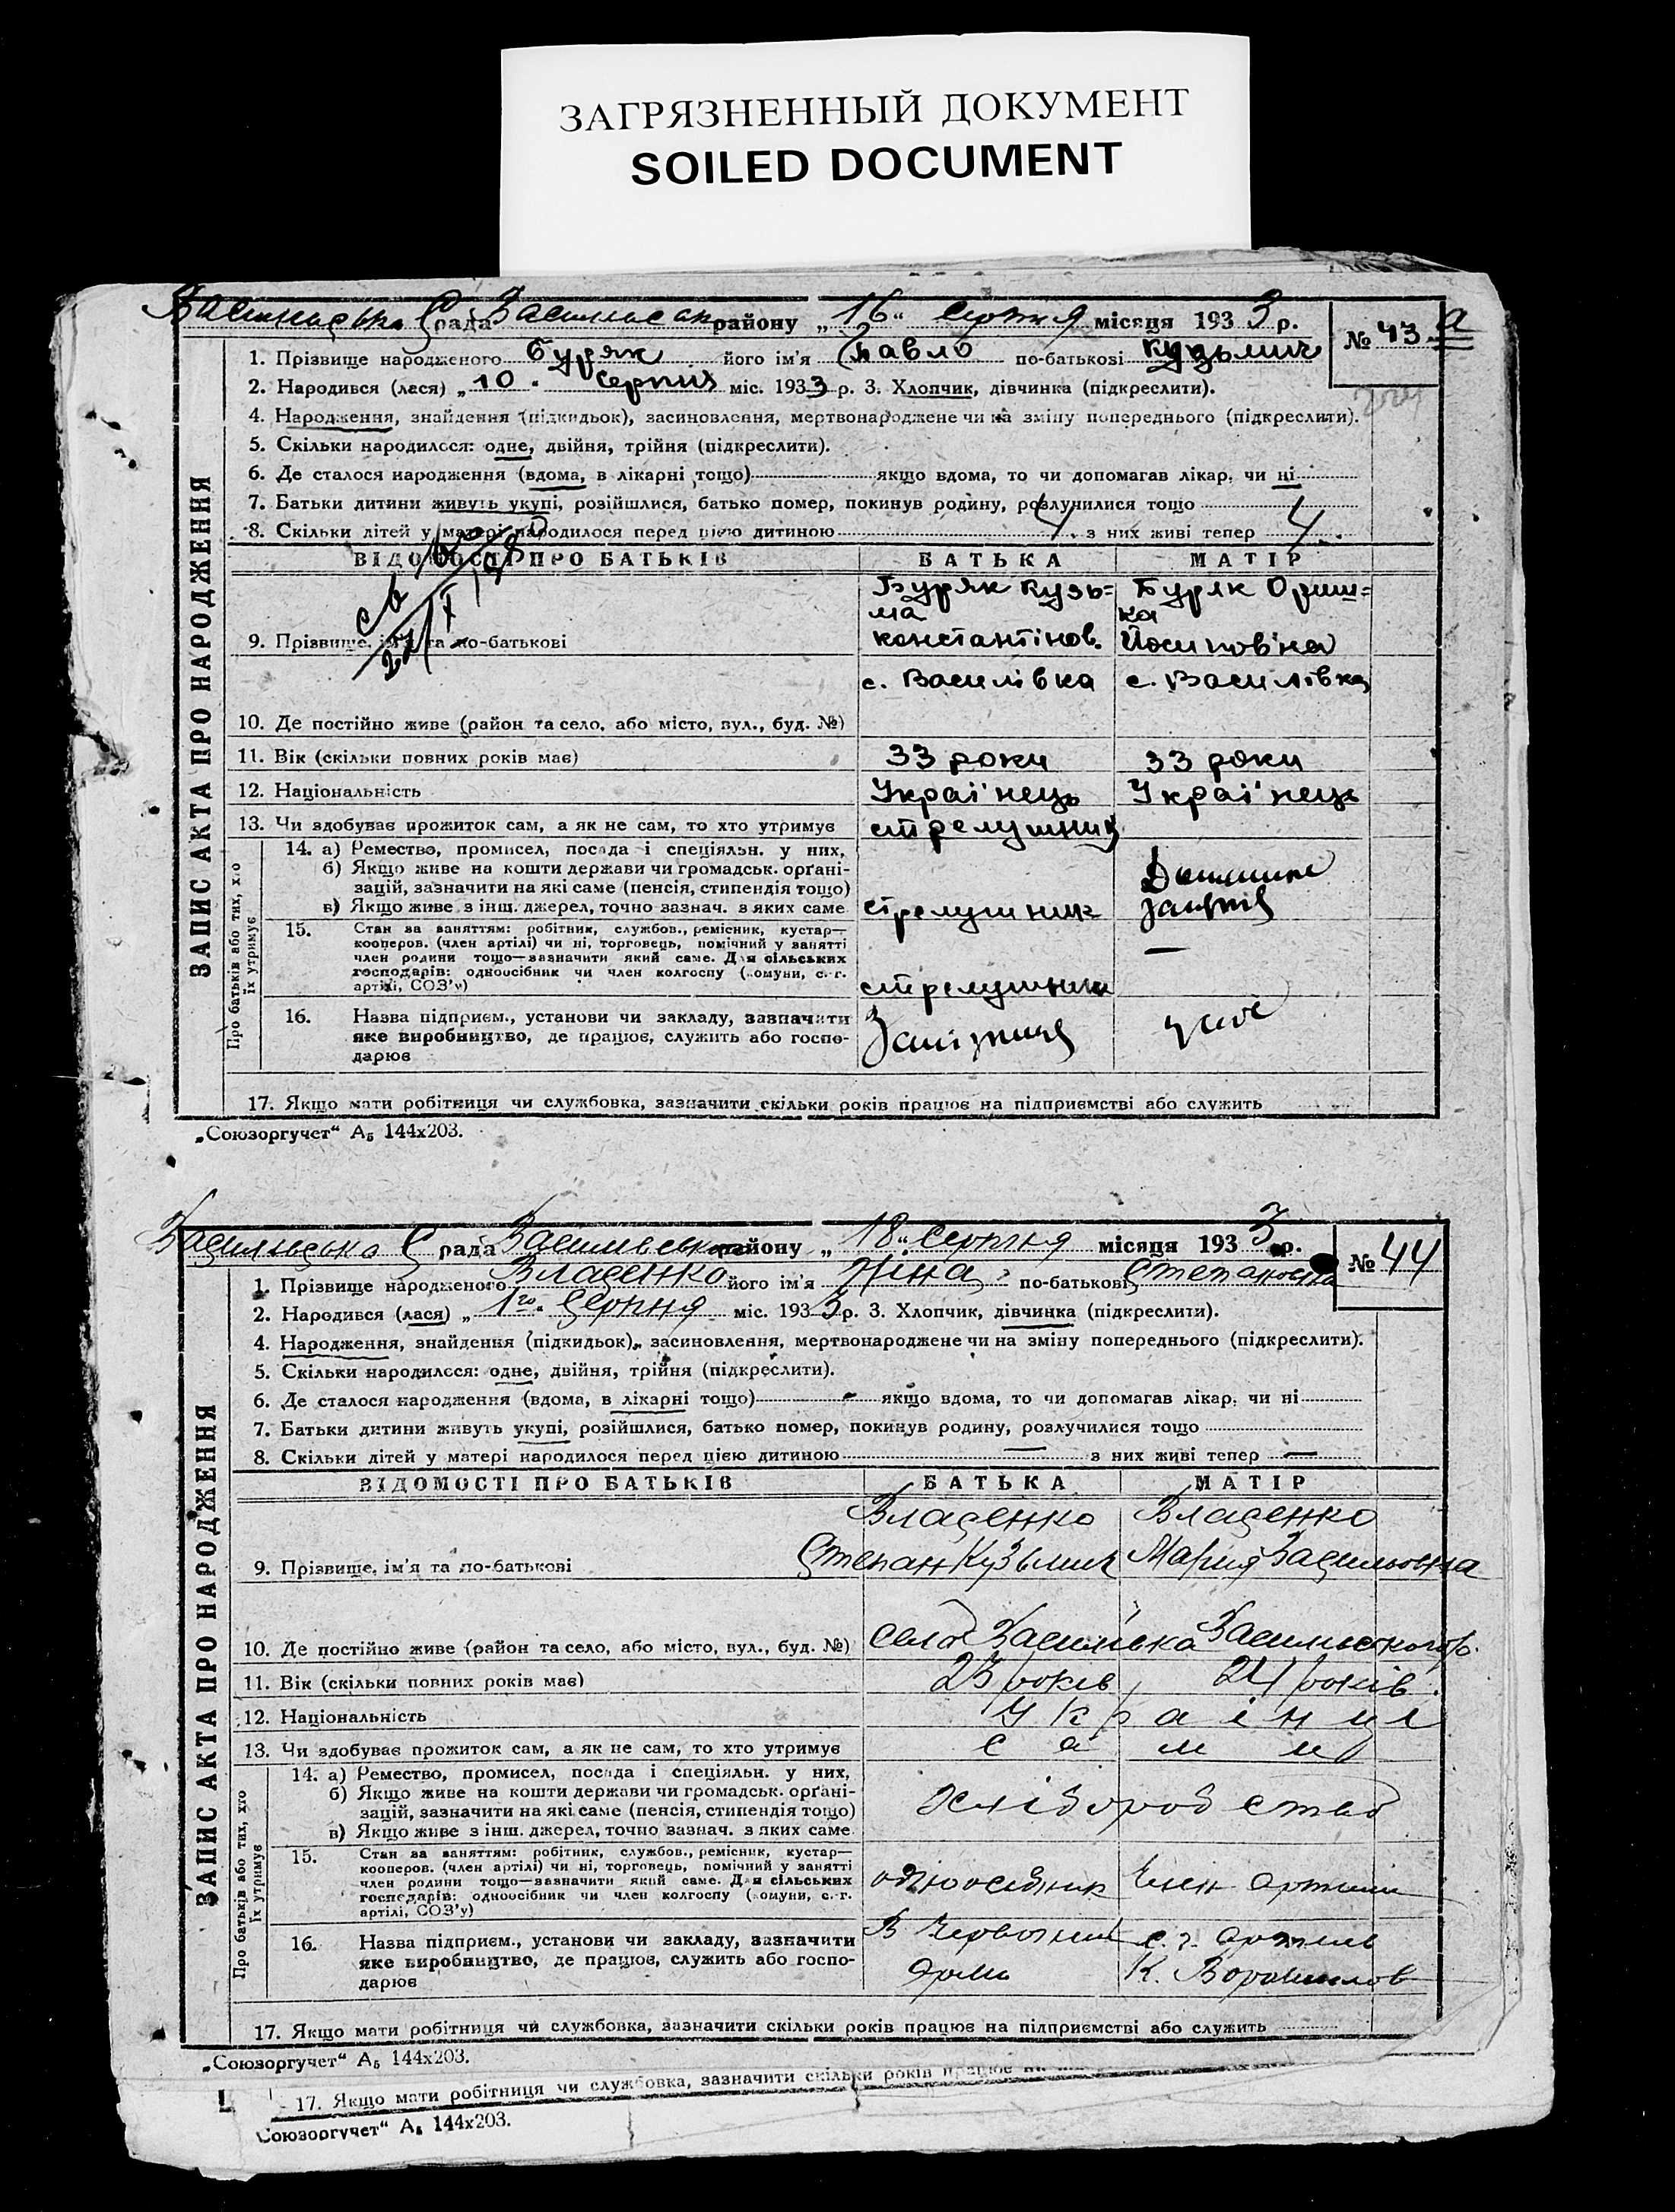 ЗАГРЯЗНЕННЫЙ ДОКУМЕНТ
SOILED DOCUMENT
рада району „16“ серпня місяця 1933 р. № 43 а
1. Прізвище народженого Буряк його ім'я Павло по-батькові Кузьмич
2. Народився (лася) „10“ Серпня міс. 1933 р. 3. Хлопчик, дівчинка (підкреслити).
4. Народження, знайдення (підкидьок), засиновлення, мертвонароджене чи на зміну попереднього (підкреслити).
5. Скільки народилося: одне, двійня, трійня (підкреслити).
6. Де сталося народження (вдома, в лікарні тощо) якщо вдома, то чи допомагав лікар, чи ні
7. Батьки дитини живуть укупі, розійшлися, батько помер, покинув родину, розлучилися тощо
8. Скільки дітей у матері народилося перед цією дитиною 4 з них живі тепер 4
ВІДОМОСТІ ПРО БАТЬКІВ БАТЬКА МАТІР
Буряк Кузь= Буряк Ориш=
ма ка
9. Прізвище, ім'я та по-батькові константінов. Йосиповна
с. Василівка с. Василівка
10. Де постійно живе (район та село, або місто, вул., буд. №)
11. Вік (скільки повних років має) 33 роки 33 роки
12. Національність Украї'нець Украї'нець
13. Чи здобуває прожиток сам, а як не сам, то хто утримує
14. а) Ремество, промисел, посада і спеціяльн. у них,
б) Якщо живе на кошти держави чи громадськ. орґані-
зацій, зазначити на які саме (пенсія, стипендія тощо)
в) Якщо живе з інш. джерел, точно зазнач. з яких саме
15. Стан за заняттям: робітник, службов., ремісник, кустар—
кооперов. (член артілі) чи ні, торговець, помічний у занятті
член родини тощо—зазначити який саме. Для сільських
господарів: одноосібник чи член колгоспу (комуни, с.-г.
артілі, СОЗ'у)
16. Назва підприєм., установи чи закладу, зазначити
яке виробництво, де працює, служить або госпо-
дарює
17. Якщо мати робітниця чи службовка, зазначити скільки років працює на підприємстві або служить
„Союзоргучет“ А₅ 144х203.
ЗАПИС АКТА ПРО НАРОДЖЕННЯ
Про батьків або тих, хто
їх утримує
рада району „18“ Серпня місяця 1933 р. № 44
1. Прізвище народженого Власенко його ім'я Ніна по-батькові Степановна
2. Народився (лася) „1го“ Серпня міс. 1933 р. 3. Хлопчик, дівчинка (підкреслити).
4. Народження, знайдення (підкидьок), засиновлення, мертвонароджене чи на зміну попереднього (підкреслити).
5. Скільки народилося: одне, двійня, трійня (підкреслити).
6. Де сталося народження (вдома, в лікарні тощо) якщо вдома, то чи допомагав лікар, чи ні
7. Батьки дитини живуть укупі, розійшлися, батько помер, покинув родину, розлучилися тощо
8. Скільки дітей у матері народилося перед цією дитиною — з них живі тепер —
ВІДОМОСТІ ПРО БАТЬКІВ БАТЬКА МАТІР
Власенко Власенко
9. Прізвище, ім'я та по-батькові Степан Кузьмич Мария Васильовна
10. Де постійно живе (район та село, або місто, вул., буд. №) село Василівка Васильевского р.
11. Вік (скільки повних років має) 23 років 24 років
12. Національність Українці
13. Чи здобуває прожиток сам, а як не сам, то хто утримує сами
14. а) Ремество, промисел, посада і спеціяльн. у них,
б) Якщо живе на кошти держави чи громадськ. орґані-
зацій, зазначити на які саме (пенсія, стипендія тощо) хліборобство
в) Якщо живе з інш. джерел, точно зазнач. з яких саме
15. Стан за заняттям: робітник, службов., ремісник, кустар—
кооперов. (член артілі) чи ні, торговець, помічний у занятті
член родини тощо—зазначити який саме. Для сільських одноосібник член артили
господарів: одноосібник чи член колгоспу (комуни, с.-г.
артілі, СОЗ'у)
16. Назва підприєм., установи чи закладу, зазначити В с. г. артель
яке виробництво, де працює, служить або госпо- К. Ворошилов
дарює
17. Якщо мати робітниця чи службовка, зазначити скільки років працює на підприємстві або служить
„Союзоргучет“ А₅ 144х203.
ЗАПИС АКТА ПРО НАРОДЖЕННЯ
Про батьків або тих, хто
їх утримує
17. Якщо мати робітниця чи службовка, зазначити скільки років працює
Союзоргучет“ А₅ 144х203.